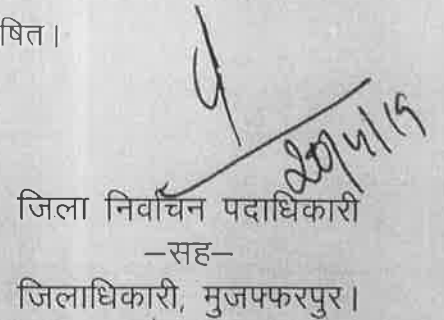 षित।
20/4/19
जिला निर्वाचन पदाधिकारी
–सह–
जिलाधिकारी, मुजफ्फरपुर।